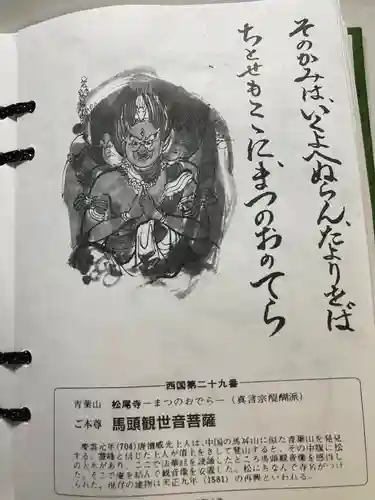 そのかみは、いくよへぬらん、たよりをば
ちとせもここに、まつのおのてら
西国第二十九番
青葉山 松尾寺―まつのおでら―(真言宗醍醐派)
ご本尊 馬頭観世音菩薩
慶雲元年(704)唐僧威光上人は、中国の馬耳山に似た青葉山を発見
する。霊峰と信じた上人が
のとれがあり、ここで法華経を読誦したところ馬頭観音像を感得し
た。そこで庵を結んで観音像を安置した。松にちなんで寺名がつけ
られた。現存の建物は天正九年(1581)の再興といわれる。